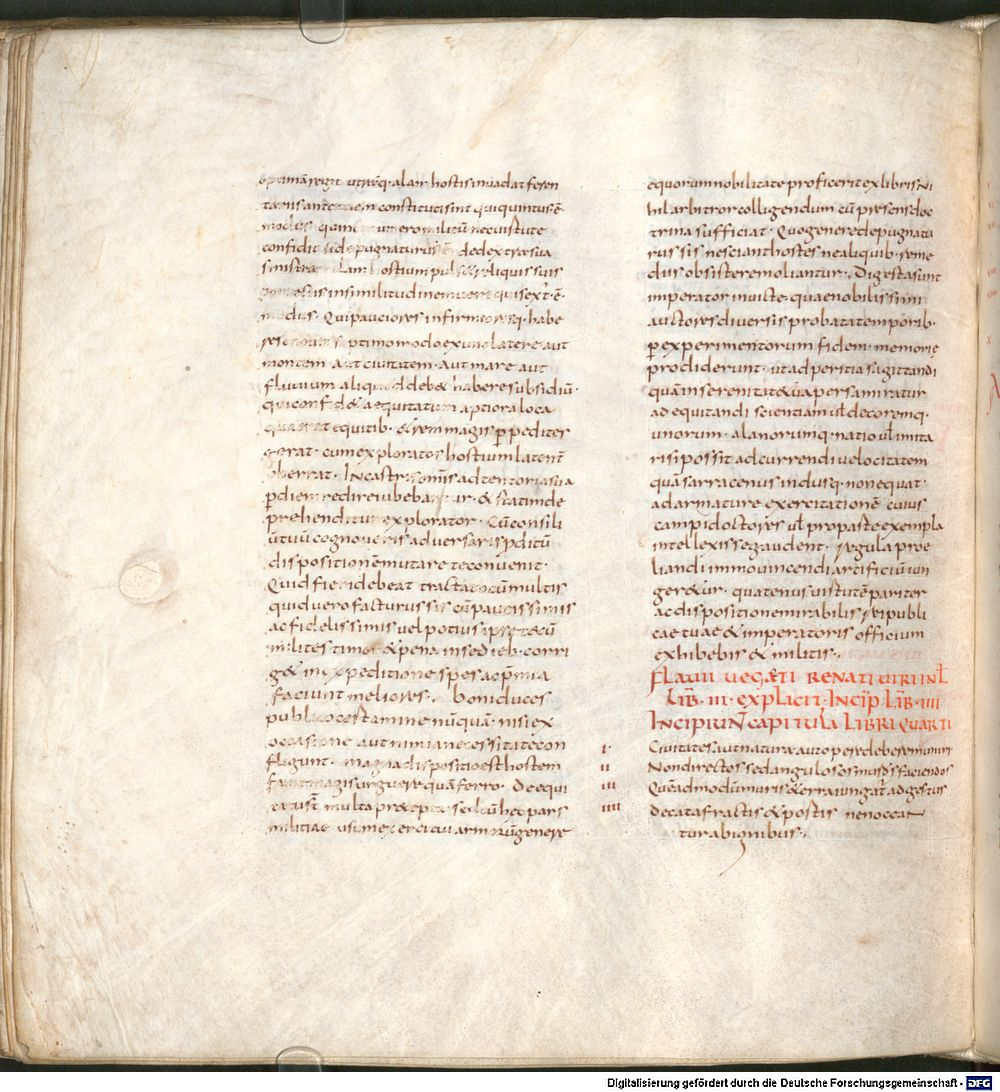 optimā regit utrāq· alam hostis inuadat feren
tariis ante constitutis in qui quintus ē·
modus· quin uero militū nec uirtute
confidit de pugnaturus dedextra sua
sinistrā alam hostium reliquis suis
in similitudinem ueru qui sext· ē·
modus· Qui pauciores infirmioresq· habe
septimo modo ex uno latere aut
montem aut ciuitatem· aut mare aut
fluuium aliquod debet habere subsidiū·
qui confidet aequitatum aptiora loca
equitib· & rem magis ꝑ pediter
gerat· cum explorator hostium latent
oberrat· In castris omīs ad tentoria sua
ꝑ diem redire iubebantur· & statim de
prehenditur explorator· Cū consili
ū tuū cognoueris aduersariis ꝓditū
dispositionē mutare te conuenit·
Quid fieri debeat tractato cū multis
quid uero facturus sis cū paucissimis
ac fidelissimis uel potius ipse tecū
milites timor & pena in sedib· corri
get in expeditione spes ac p̄mia
faciunt meliores· boni duces
publico certamine nūquā· nisi ex
occasione aut nimia necessitate con
fligunt· magna dispositio est hostem
fame magis urguere quā ferro· De equi
tatu sunt multa precepta sed cū hec pars
militiae usu exercitu armorū genere
equorum nobilitate profecerit ex libris ni
hil arbitror colligendum cū praesens doc
trina sufficiat· Quo genere depugnatu
rus sis nesciant hostes ne aliquib· reme
diis obsistere moliantur· Digesta sunt
imperator inuicte· quae nobilissimi
auctores diuersis probata temporib·
ꝑ experimentorum fidem· memorię
prodiderunt· ut ad peritia sagittandi
quā in serenitate tua persa miratur
ad equitandi scientiam ul decoremq·
unorum· alanorumq· natio ul imita
ri si possit ad currendi uelocitatem
quā sarracenus indusq· non equat·
ad armature exercitationē cuius
campidoctores ul pro parte exempla
intellexisse gaudent· regula proe
liandi immo uincendi artificiū iun
geretur· quatenus uirtutē pariter
ac dispositione mirabilis reipubli
cae tuae & imperatoris officium
exhibebis & militis·
FLAUII UEGÆTI RENATI UIRI INL
LIB· III· EXPLICIT· INCIP LIB· IIII
INCIPIUN CAPITULA LIBRI QUARTI
i· Ciuitates aut natura aut opere debere muniri
ii Non directos sed angulosos muros faciendos
iii Quēadmodū muris & erra iungat adgestus
iiii de catafractis & portis ne noceat
tur ab ignibus·
Digitalisierung gefördert durch die Deutsche Forschungsgemeinschaft - DFG